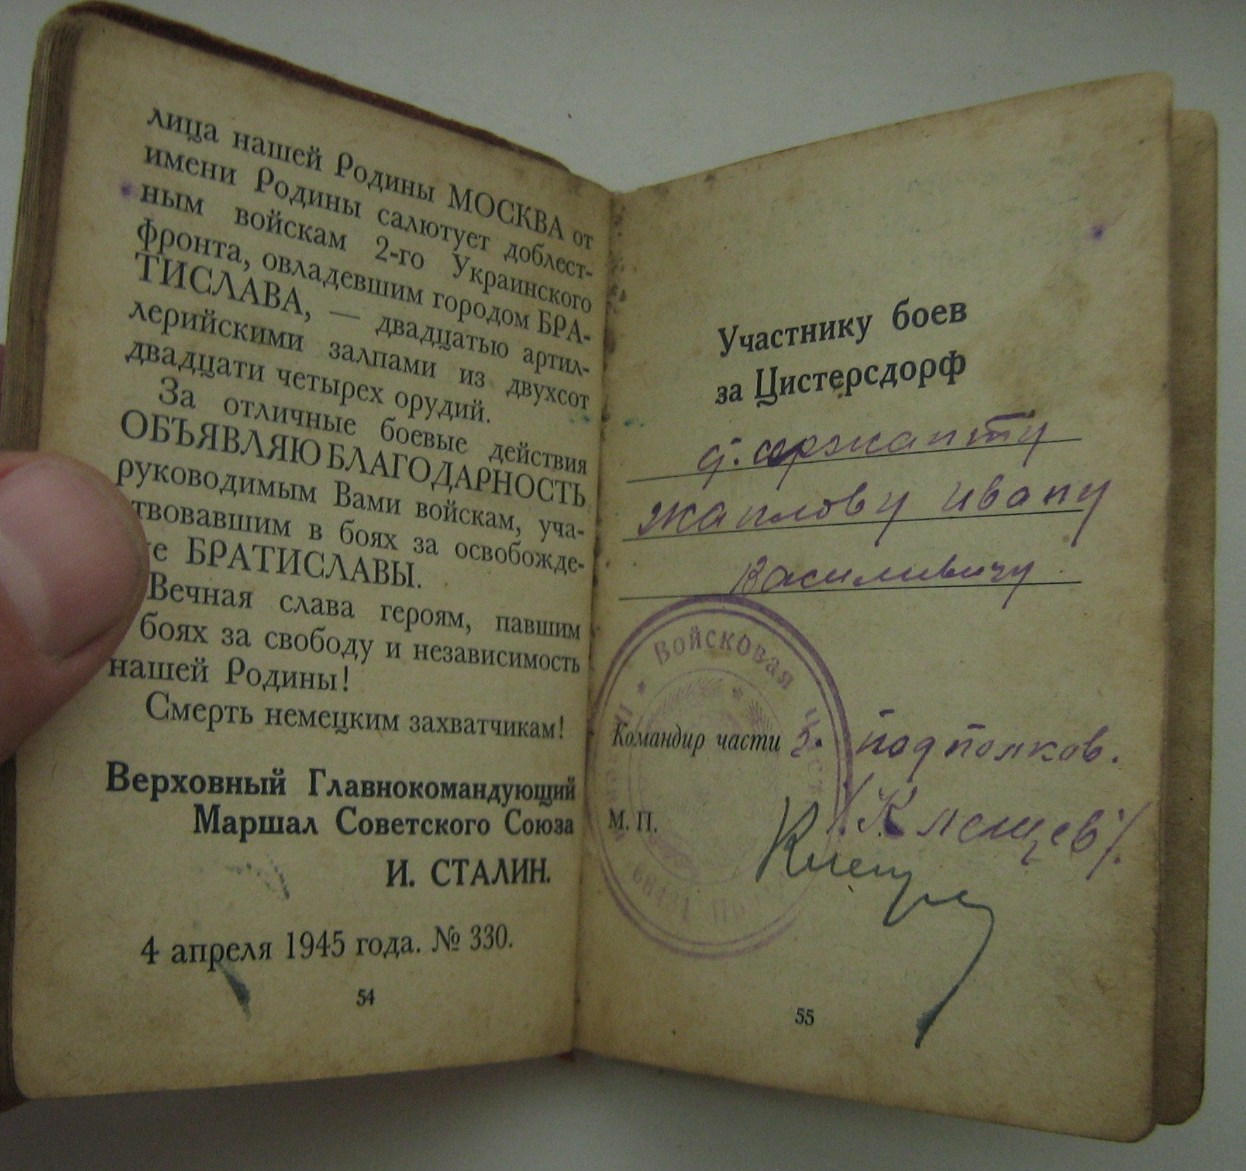 лица нашей Родины МОСКВА от
имени Родины салютует доблест-
ным войскам 2-го Украинского
фронта, овладевшим городом БРА-
ТИСЛАВА, — двадцатью артил-
лерийскими залпами из двухсот
двадцати четырех орудий.
За отличные боевые действия
ОБЪЯВЛЯЮ БЛАГОДАРНОСТЬ
руководимым Вами войскам, уча-
твовавшим в боях за освобожде-
е БРАТИСЛАВЫ.
Вечная слава героям, павшим
боях за свободу и независимость
нашей Родины!
Смерть немецким захватчикам!
Верховный Главнокомандующий
Маршал Советского Союза
И. СТАЛИН.
4 апреля 1945 года. № 330.
54
Участнику боев
за Цистерсдорф
сержанту
Жаплову Ивану
Василивичу
Войсковая Част
Командир части подполков.
М. П. /Клещев/.
55